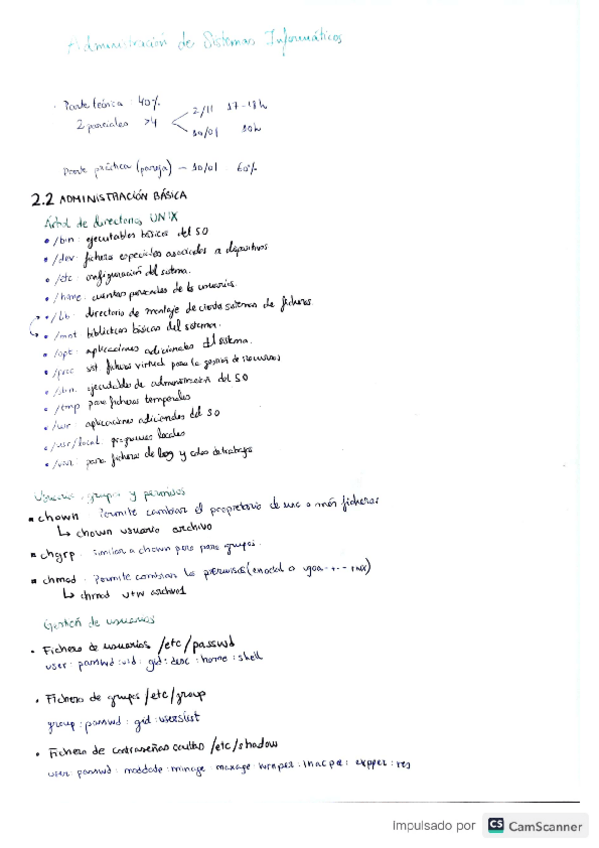 Administración de Sistemas Informáticos
· Parte teórica : 40%
2 parciales >4
2/11 17-19h
10/01 10h
Parte práctica (pareja) - 10/01 60%
2.2 ADMINISTRACIÓN BÁSICA
Árbol de directorios UNIX
• /bin : ejecutables básicos del SO
• /dev : ficheros especiales asociados a dispositivos
• /etc : configuración del sistema.
• /home : cuentas personales de los usuarios.
• /lib : directorio de montaje de ciertos sistemas de ficheros.
• /mnt bibliotecas básicas del sistema.
• /opt : aplicaciones adicionales del sistema.
• /proc sist ficheros virtual para la gestión de recursos
• /sbin : ejecutables de administración del SO
• /tmp para ficheros temporales
• /usr : aplicaciones adicionales del SO
• /usr/local : programas locales
• /var : para ficheros de log y colas de trabajo
Usuarios, grupos y permisos
▪ chown : Permite cambiar el propietario de uno o más ficheros
↳ chown usuario archivo
▪ chgrp : similar a chown pero para grupos.
▪ chmod : Permite cambiar los permisos
↳ chmod u+w archivo1
Gestión de usuarios
• Fichero de usuarios /etc/passwd
user : passwd : uid : gid : desc : home : shell
• Fichero de grupos /etc/group
group : passwd : gid : userslist
• Fichero de contraseñas ocultas /etc/shadow
user : passwd : moddate : minage : maxage :
Impulsado por CS CamScanner